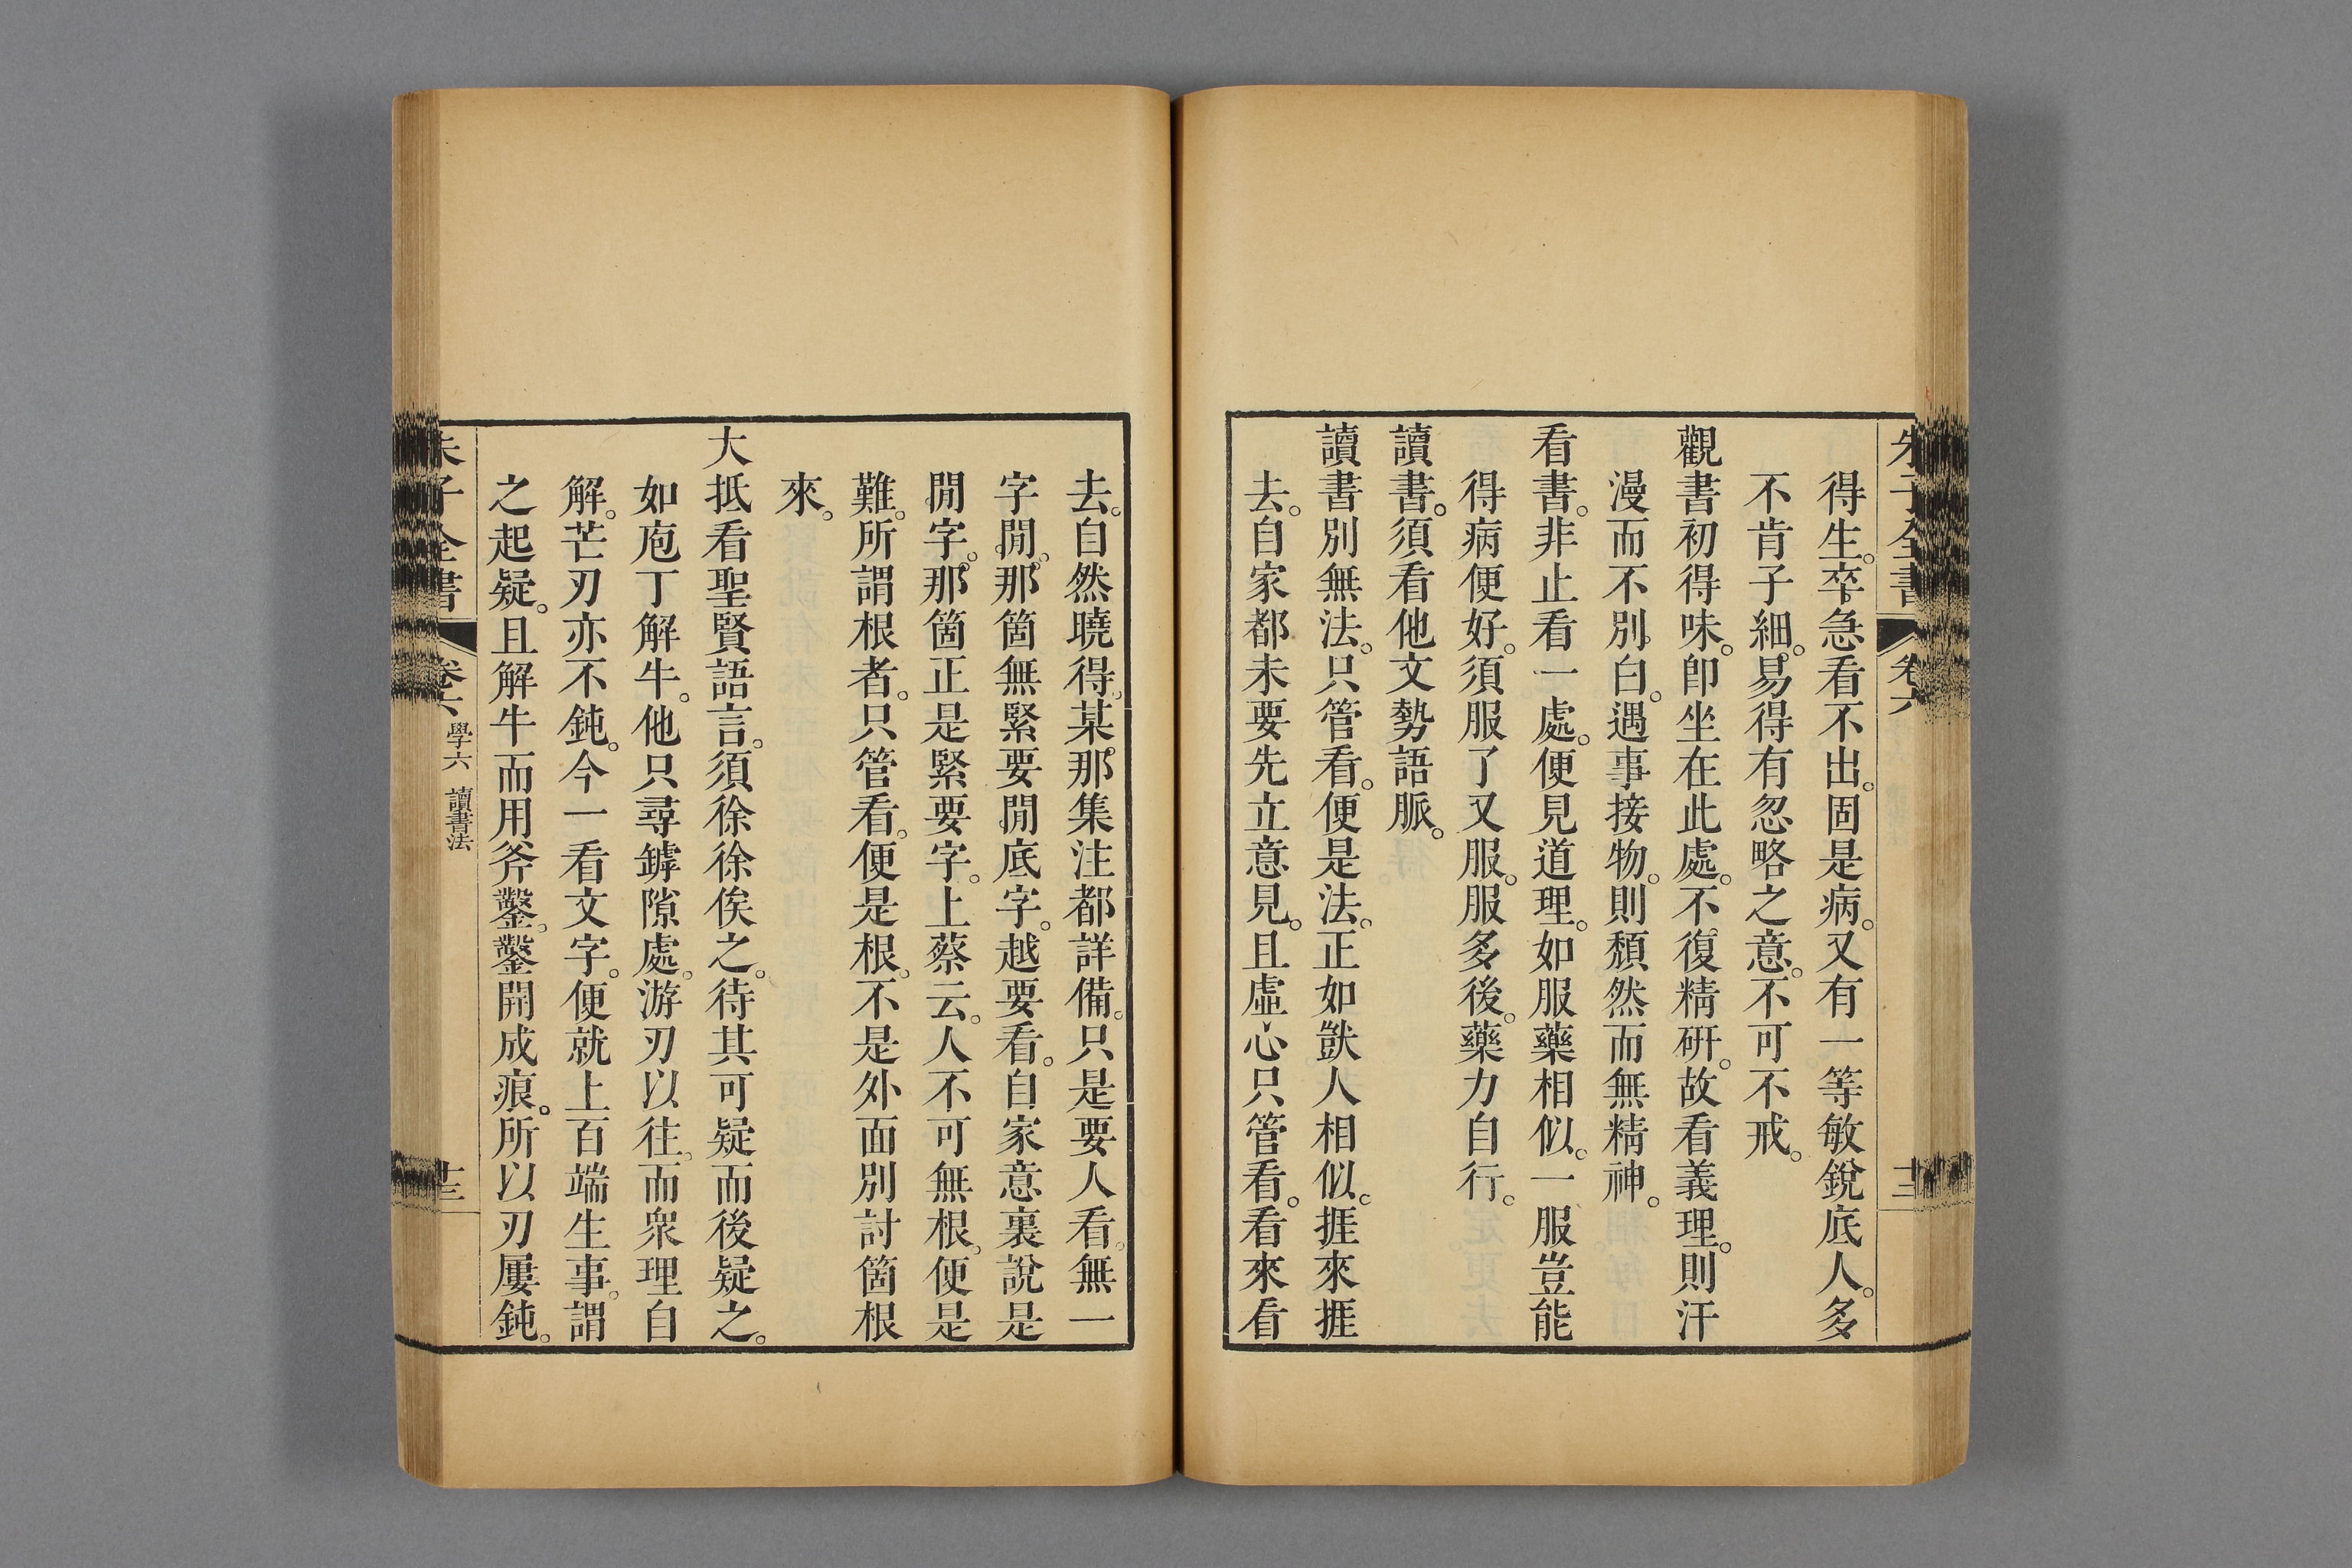 朱子全書 卷六 十二
得生。卒急看不出。固是病。又有一等敏銳底人。多
不肯子細。易得有忽略之意。不可不戒。
觀書初得味。卽坐在此處。不復精研。故看義理。則汗
漫而不別白。遇事接物。則頹然而無精神。
看書。非止看一處。便見道理。如服藥相似。一服豈能
得病便好。須服了又服。服多後。藥力自行。
讀書。須看他文勢語脈。
讀書別無法。只管看。便是法。正如獃人相似。捱來捱
去。自家都未要先立意見。且虛心只管看。看來看
去。自然曉得。某那集注都詳備。只是要人看。無一
字閒。那箇無緊要閒底字。越要看。自家意裏說是
閒字。那箇正是緊要字。上蔡云。人不可無根。便是
難。所謂根者。只管看。便是根。不是外面別討箇根
來。
大抵看聖賢語言。須徐徐俟之。待其可疑而後疑之。
如庖丁解牛。他只尋罅隙處。游刃以往。而衆理自
解。芒刃亦不鈍。今一看文字。便就上百端生事。謂
之起疑。且解牛而用斧鑿。鑿開成痕。所以刃屢鈍。
朱子全書 卷六 學六 讀書法 十三